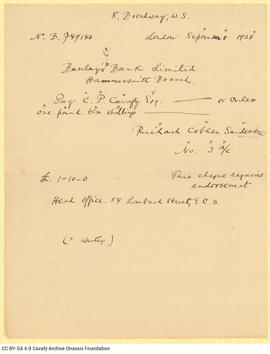 8, Broadway, W.S.
No. B. J49140 London September 192
Barclays Bank Limited
Hammersmith Branch.
Pay C. P. Cavafy Esq. or Order
one pound ten shillings
Richard Cobden Sanderson
No. 3 a/c
£. 1-10-0 This cheque requires
endorsement
Head Office. 54 Lombard Street, E.C.3
CC BY-SA 4.0 Cavafy Archive Onassis Foundation